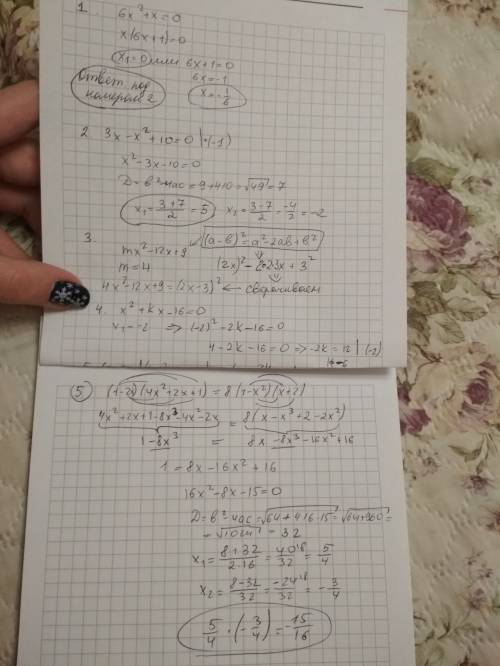 1.
6x²+x=0
x(6x+1)=0
x₁=0 или 6x+1=0
6x=-1
x=-1/6
ответ под номером 2
2. 3x-x²+10=0 |·(-1)
x²-3x-10=0
D=в²-4ас=9+4·10=√49=7
x₁=(3+7)/2=5 x₂=(3-7)/2=-4/2=-2
3.
(a-b)²=a²-2ab+b²
mx²-12x+9
m=4
(2x)²-2·2·3x+3²
4x²-12x+9=(2x-3)² ← сворачиваем
4. x²+kx-16=0
x₁=-2 => (-2)²-2k-16=0
4-2k-16=0 => -2k=12 |(-2)
k=-6
5 (1-2x)(4x²+2x+1)=8(1-x²)(x+2)
4x²+2x+1-8x³-4x²-2x = 8(x-x³+2-2x²)
1-8x³ = 8x-8x³-16x²+16
1=8x-16x²+16
16x²-8x-15=0
D=в²-4ас=√64+4·16·15=√64+960=
=√1024=32
x₁=(8+32)/(2·16)=40/32=5/4
x₂=(8-32)/32=-24/32=-3/4
5/4·(-3/4)=-15/16